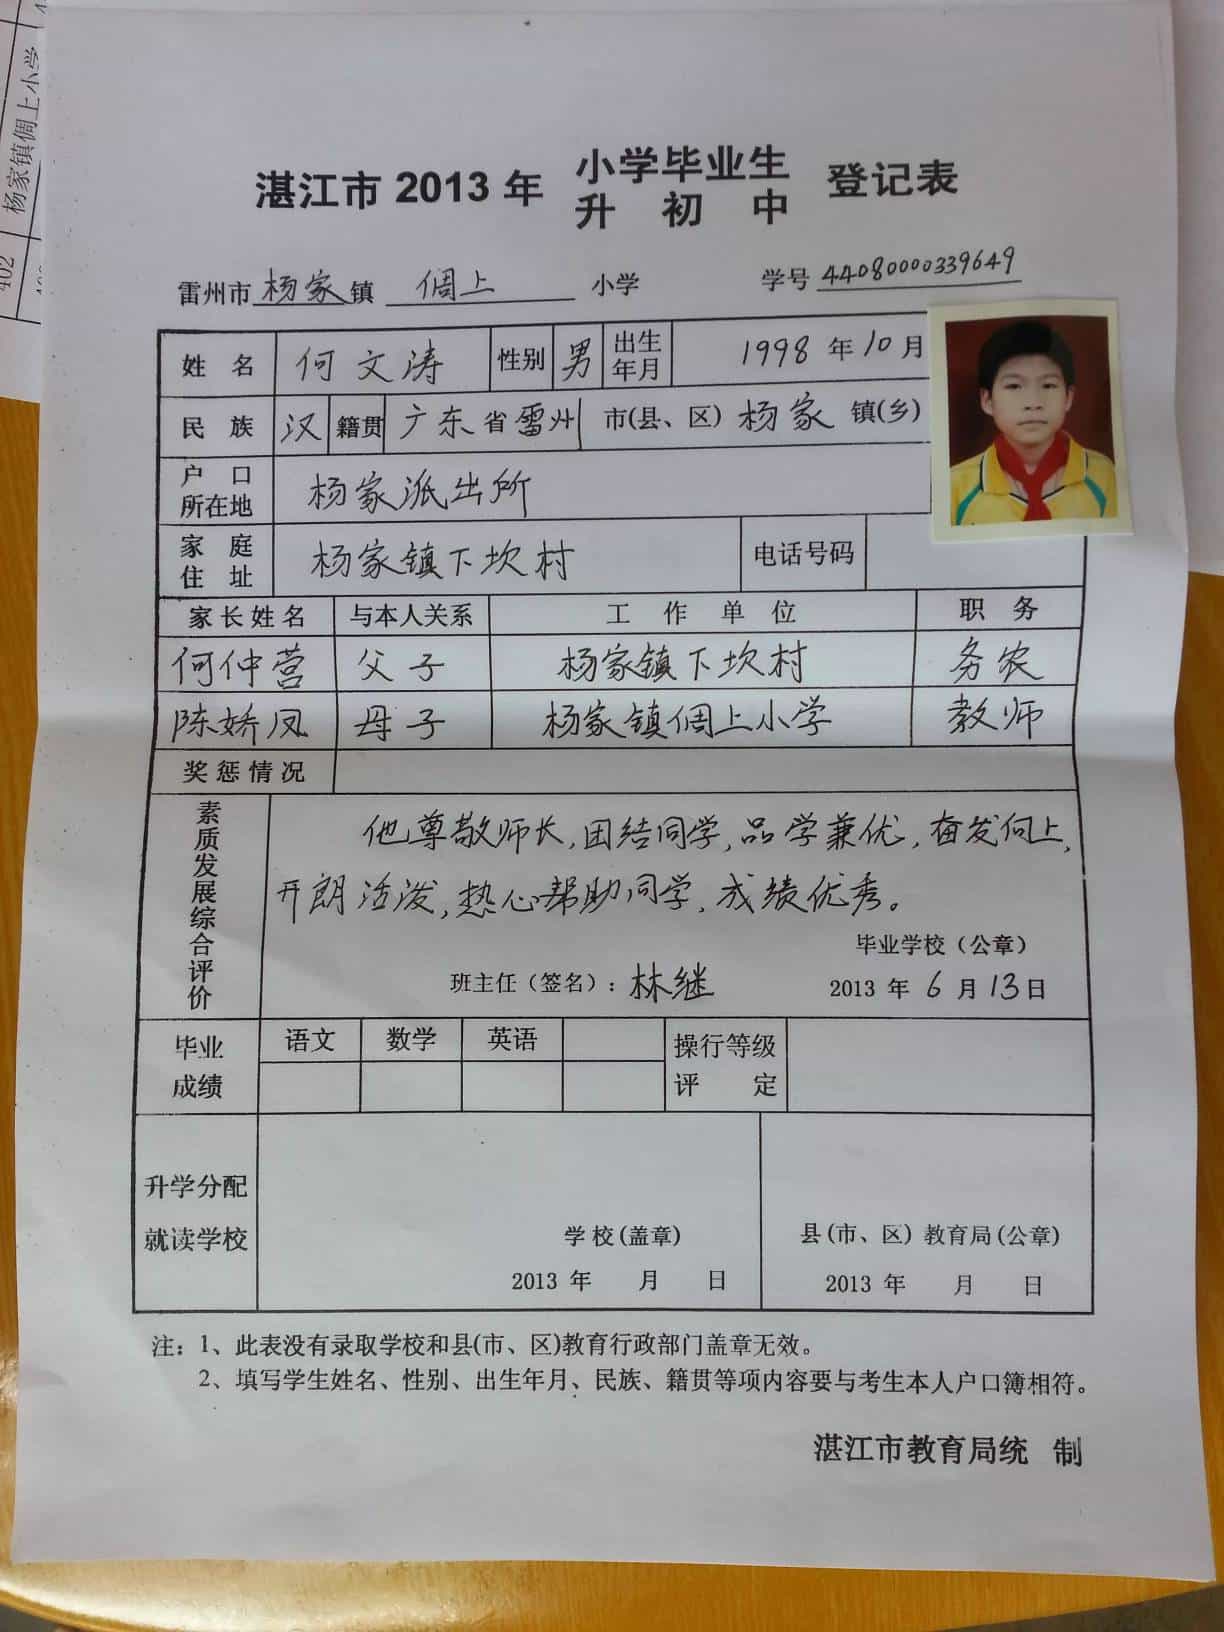 杨家镇倜上小学
402
湛江市 2013 年 小学毕业生 登记表
升初中
雷州市 杨家 镇 倜上 小学 学号 44080000339649
姓名 何文涛 性别 男 出生年月 1998 年 10 月
民族 汉 籍贯 广东省雷州 市(县、区) 杨家 镇(乡)
户口所在地 杨家派出所
家庭住址 杨家镇下坎村 电话号码
家长姓名 与本人关系 工作单位 职务
何仲营 父子 杨家镇下坎村 务农
陈娇凤 母子 杨家镇倜上小学 教师
奖惩情况
素质发展综合评价
他尊敬师长,团结同学,品学兼优,奋发向上,
开朗活泼,热心帮助同学,成绩优秀。
毕业学校（公章）
班主任（签名）: 林继 2013 年 6 月 13 日
毕业成绩 语文 数学 英语 操行等级评定
升学分配
就读学校
学校(盖章) 县(市、区) 教育局(公章)
2013 年 月 日 2013 年 月 日
注: 1、此表没有录取学校和县(市、区)教育行政部门盖章无效。
2、填写学生姓名、性别、出生年月、民族、籍贯等项内容要与考生本人户口簿相符。
湛江市教育局统 制